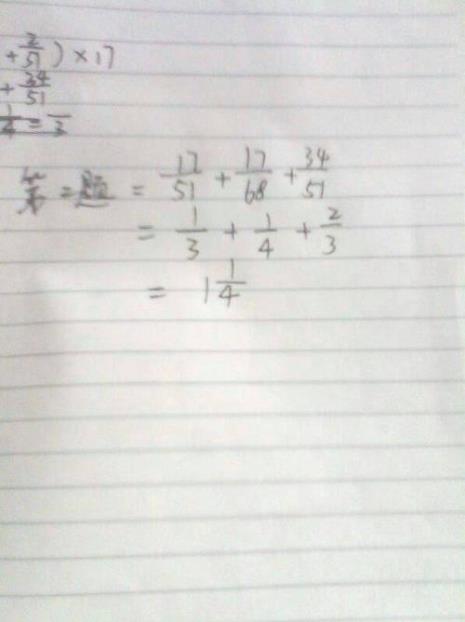 + 2/51 ) × 17
+ 34/51
1/4 = 1/3
第二题 = 17/51 + 17/68 + 34/51
= 1/3 + 1/4 + 2/3
= 1 1/4